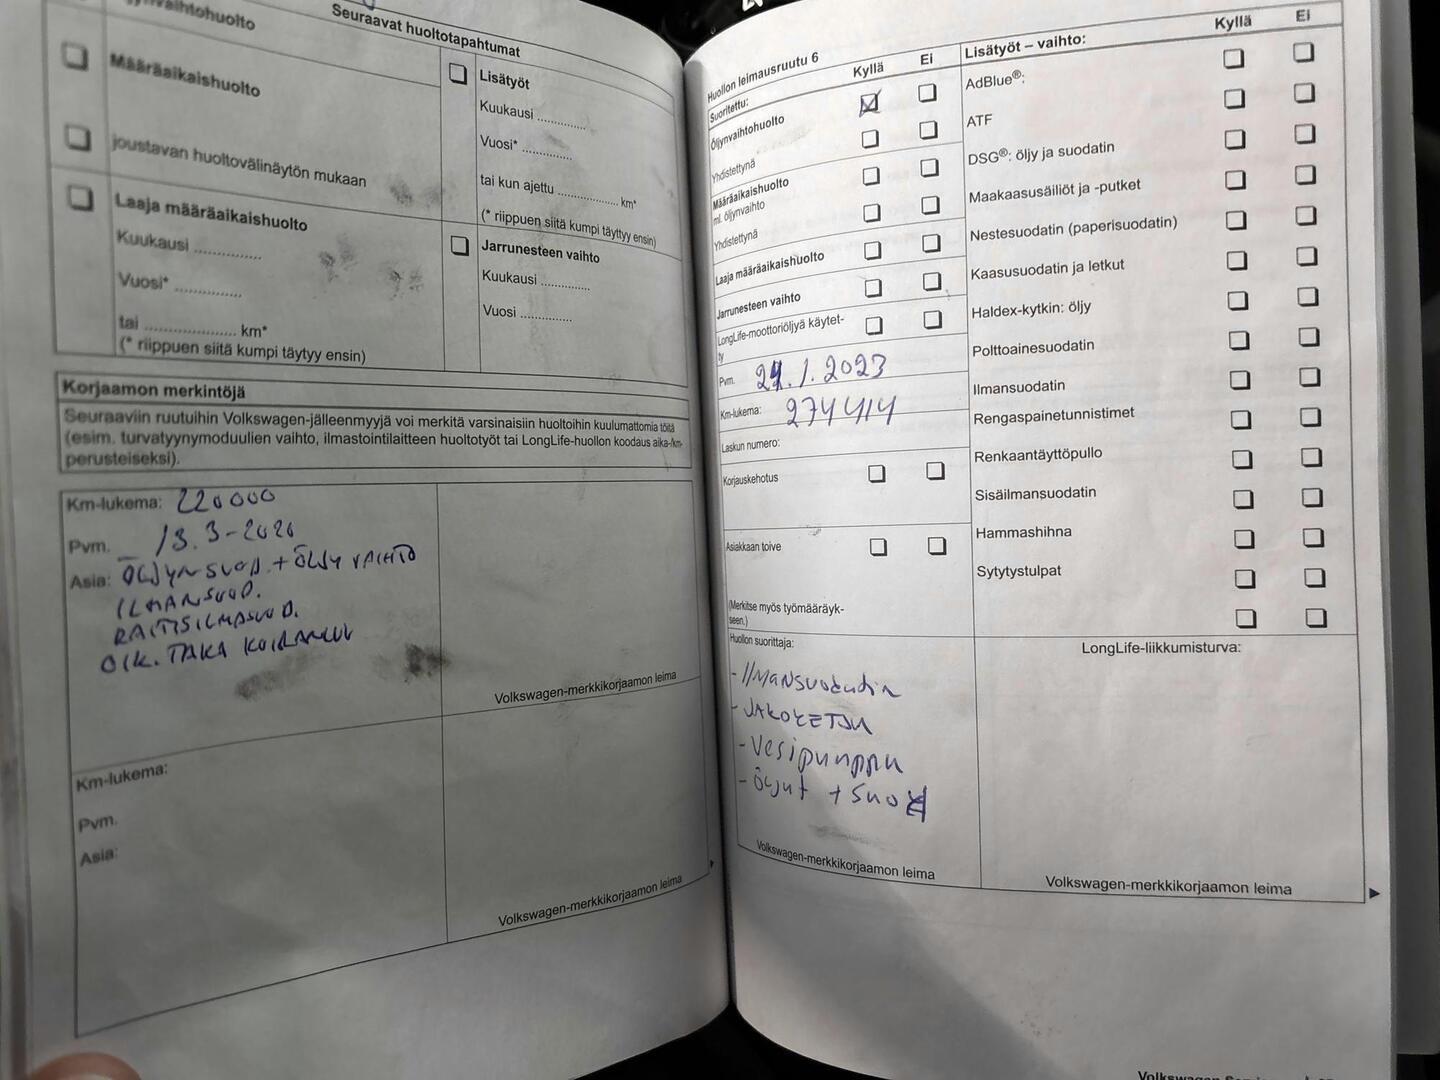 Seuraavat huoltotapahtumat
Määräaikaishuolto
joustavan huoltovälinäytön mukaan
Laaja määräaikaishuolto
Kuukausi ...............
Vuosi* ...............
tai .................... km*
(* riippuen siitä kumpi täytyy ensin)
Lisätyöt
Kuukausi .............
Vuosi* .............
tai kun ajettu ................ km*
(* riippuen siitä kumpi täyttyy ensin)
Jarrunesteen vaihto
Kuukausi .............
Vuosi .............
Korjaamon merkintöjä
Seuraaviin ruutuihin Volkswagen-jälleenmyyjä voi merkitä varsinaisiin huoltoihin kuulumattomia töitä
(esim. turvatyynymoduulien vaihto, ilmastointilaitteen huoltotyöt tai LongLife-huollon koodaus aika-/km-
perusteiseksi).
Km-lukema: 220000
Pvm. 13.3-2020
Asia: ÖLJYNSUOD. + ÖLJY VAIHTO
ILMANSUOD.
RAITISILMASUOD.
OIK. TAKA
Volkswagen-merkkikorjaamon leima
Km-lukema:
Pvm.
Asia:
Volkswagen-merkkikorjaamon leima
Huollon leimausruutu 6
Suoritettu: Kyllä Ei
Öljynvaihtohuolto
Yhdistettynä
Määräaikaishuolto
ml. öljynvaihto
Yhdistettynä
Laaja määräaikaishuolto
Jarrunesteen vaihto
LongLife-moottoriöljyä käytet-
ty
Pvm. .1.2023
Km-lukema: 274414
Laskun numero:
Korjauskehotus
Asiakkaan toive
(Merkitse myös työmääräyk-
seen.)
Huollon suorittaja:
- Ilmansuodatin
- JAKOKETJU
- Vesipumppu
- Öljyt + suod
Volkswagen-merkkikorjaamon leima
Lisätyöt – vaihto: Kyllä Ei
AdBlue®:
ATF
DSG®: öljy ja suodatin
Maakaasusäiliöt ja -putket
Nestesuodatin (paperisuodatin)
Kaasusuodatin ja letkut
Haldex-kytkin: öljy
Polttoainesuodatin
Ilmansuodatin
Rengaspainetunnistimet
Renkaantäyttöpullo
Sisäilmansuodatin
Hammashihna
Sytytystulpat
LongLife-liikkumisturva:
Volkswagen-merkkikorjaamon leima